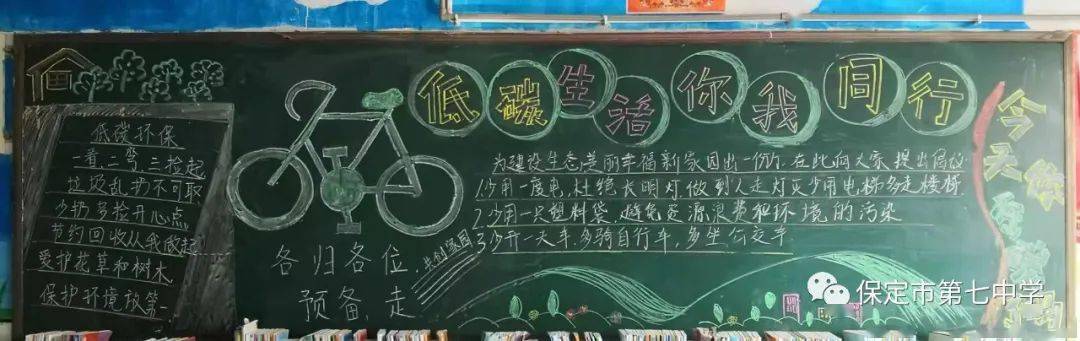 低碳生活你我同行
低碳环保
一看,二弯,三捡起
垃圾乱扔不可取
少扔多捡开心点
节约回收从我做起
爱护花草和树木
保护环境放第一
各归各位,
预备,走
共创家园
为建设生态美丽幸福新家园出一份力,在此向大家提出倡议
1.少用一度电,杜绝长明灯,做到人走灯灭少用电梯多走楼梯.
2.少用一只塑料袋,避免资源浪费和环境的污染
3.少开一天车,多骑自行车,多坐公交车
今天你
保定市第七中学